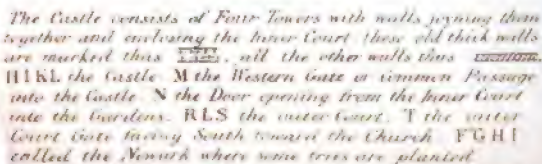 The Castle consists of Four Towers with walls joyning them
together and enclosing the Inner Court these old thick walls
are marked thus , all the other walls thus
HIKL the Castle M the Western Gate or common Passage
into the Castle N the Door opening from the Inner Court
into the Gardens. RLS the outer Court. T the outer
Court Gate facing South toward the Church FGHI
called the Newark where some trees are planted